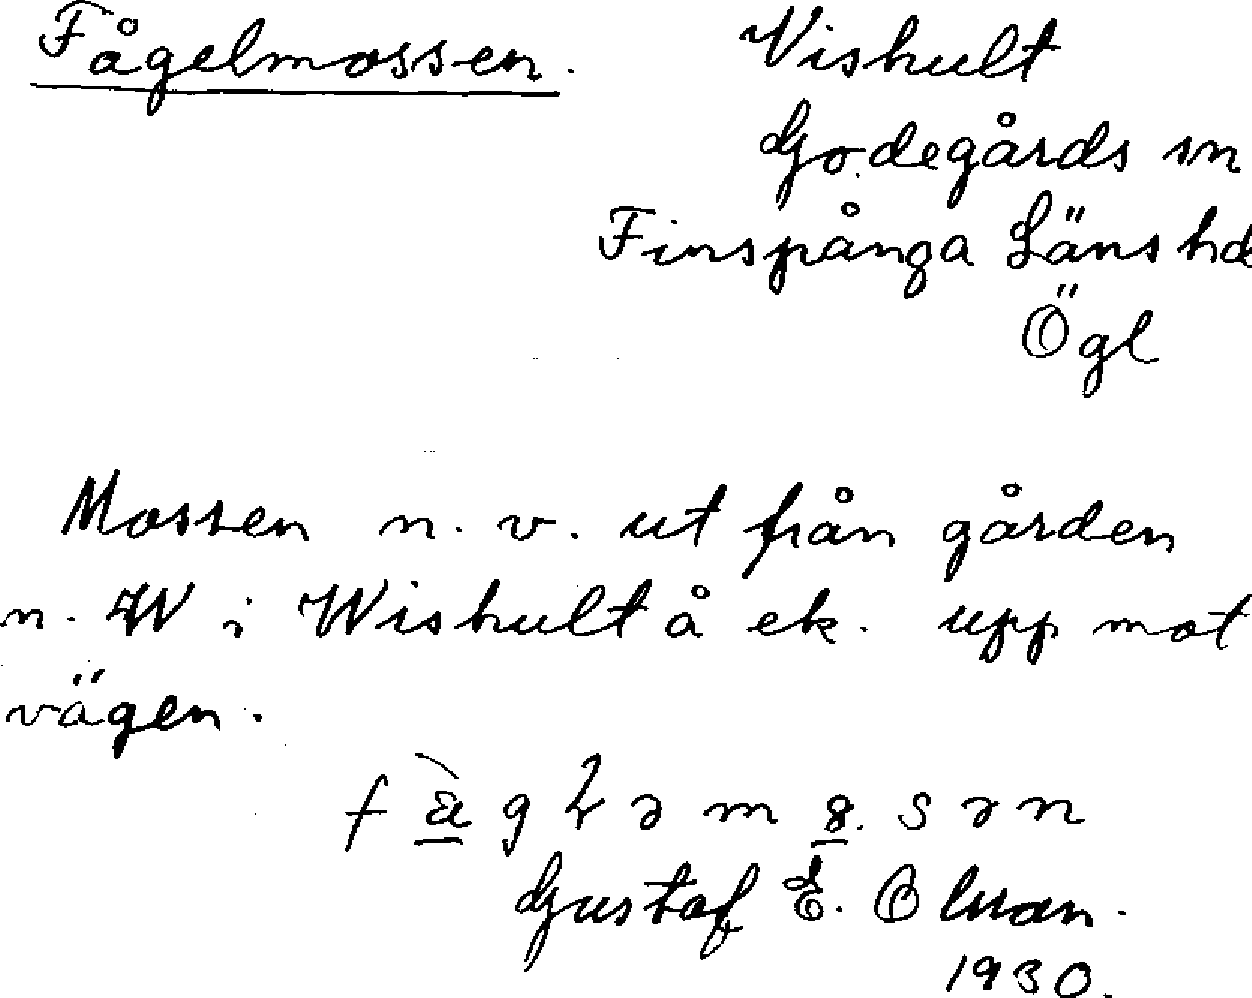 Fågelmossen.
Vishult
Godegårds sn
Finspånga Läns hd
Ögl
Mossen n. v. ut från gården
n. W i Wishult å ek. upp mot
vägen.
Gustaf E. Olsson.
1930.